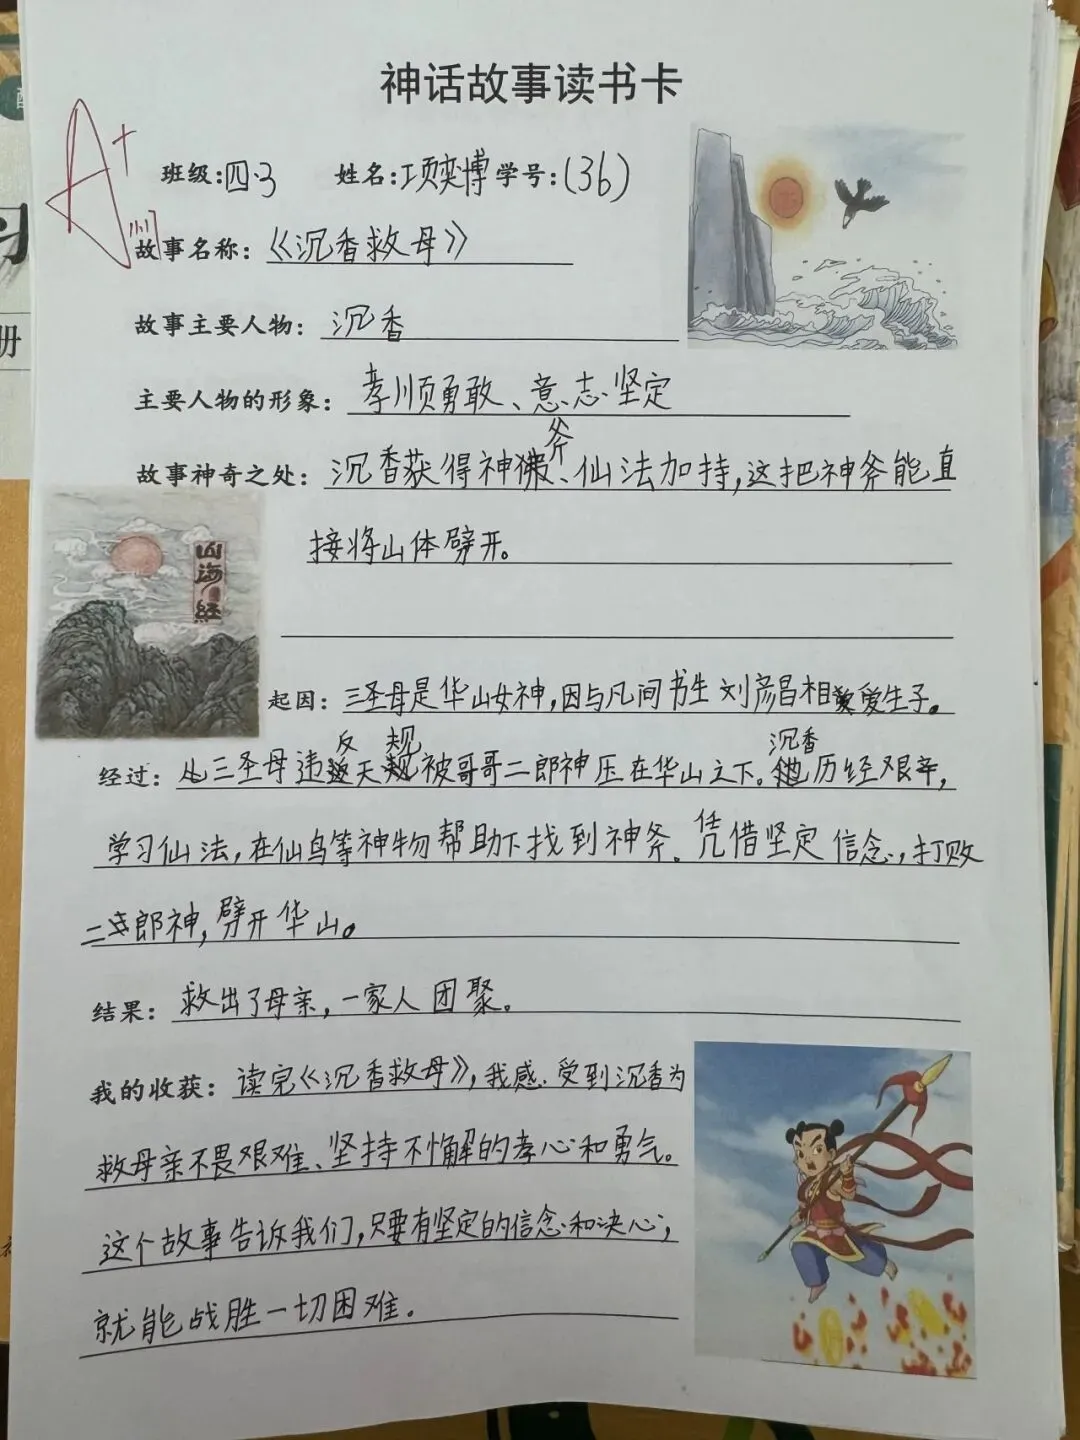 神话故事读书卡
A+
班级:四.3 姓名:项奕博 学号:(36)
故事名称:《沉香救母》
故事主要人物:沉香
主要人物的形象:孝顺勇敢、意志坚定
故事神奇之处:沉香获得神斧、仙法加持,这把神斧能直
接将山体劈开。
山海经
起因:三圣母是华山女神,因与凡间书生刘彦昌相爱生子。
经过:三圣母违反天规被哥哥二郎神压在华山之下。沉香历经艰辛,
学习仙法,在仙鸟等神物帮助下找到神斧。凭借坚定信念,打败
二郎神,劈开华山。
结果:救出了母亲,一家人团聚。
我的收获:读完《沉香救母》,我感受到沉香为
救母亲不畏艰难、坚持不懈的孝心和勇气。
这个故事告诉我们,只要有坚定的信念和决心,
就能战胜一切困难。
习
册